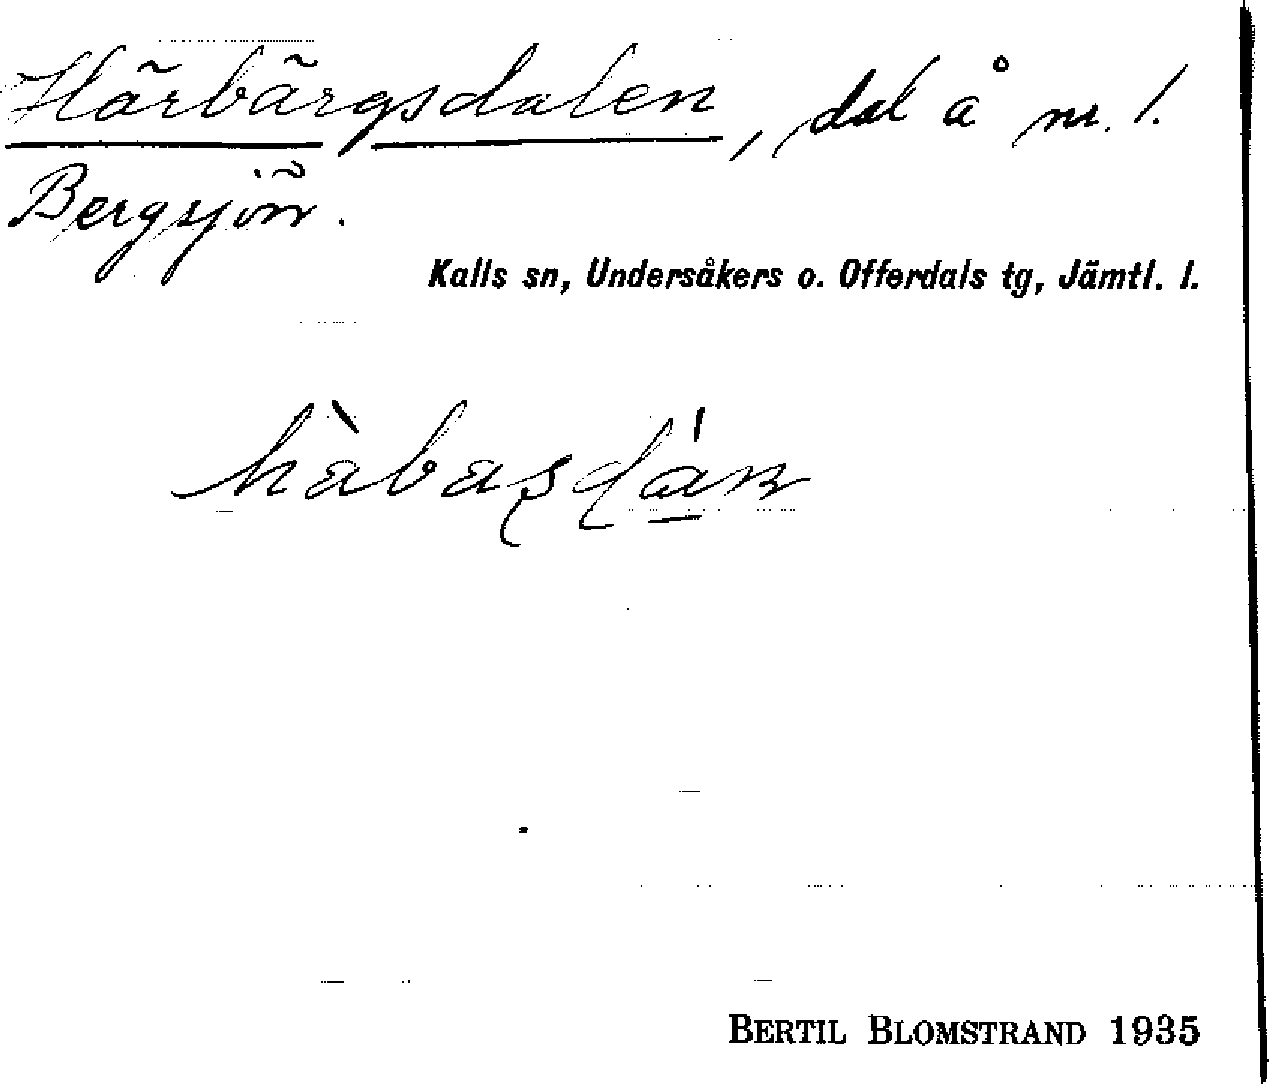 Härbärgsdalen, dal å nr. 1.
Bergsjön.
Kalls sn, Undersåkers o. Offerdals tg, Jämtl. l.
BERTIL BLOMSTRAND 1935